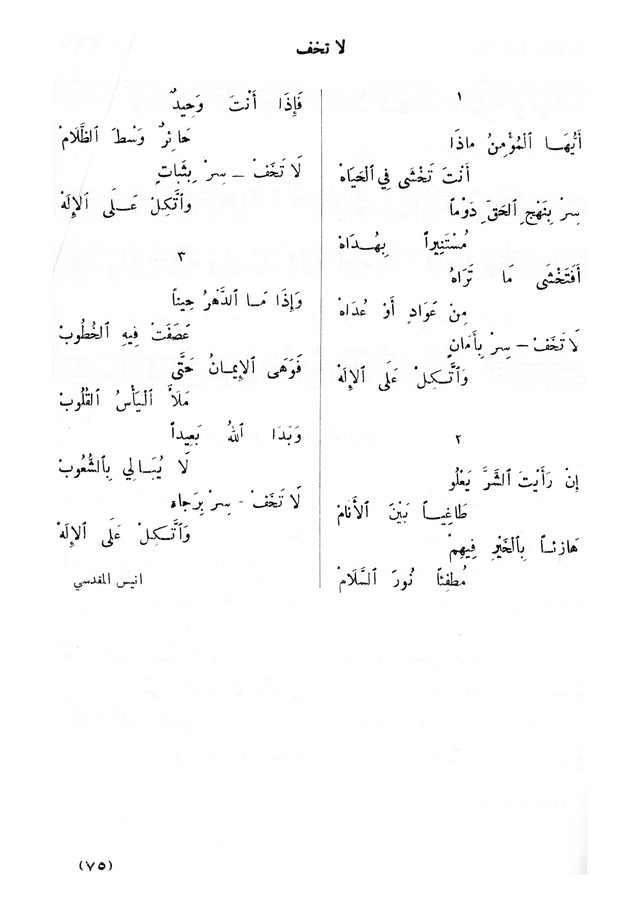 لا تخف
١
أَيُّهَـا ٱلْمُؤْمِنُ ماذَا
أَنْتَ تَخْشَى فِي ٱلْحَيَاهْ
سِرْ بِنَهْجِ ٱلحَقِّ دَوْماً
مُسْتَنِيراً بِهُـدَاهْ
أَفَتَخْشَى مَا تَرَاهُ
مِنْ عَوَادٍ أَوْ عُدَاهْ
لَا تَخَفْ – سِرْ بِأَمَانٍ
وَٱتَّكِلْ عَلَى ٱلإِلَهْ
٢
إِنْ رَأَيْتَ ٱلشَّرَّ يَعْلُو
طَاغِيـاً بَيْنَ ٱلأَنَامْ
هَازِئـاً بِٱلخَيْرِ فِيهِمْ
مُطفِئاً نُورَ ٱلسَّلَامْ
فَإِذَا أَنْتَ وَحِيدٌ
حَائِرٌ وَسْطَ ٱلظَّلَامْ
لَا تَخَفْ – سِرْ بِثَبَاتٍ
وٱتَّكِلْ عَـلَى ٱلإِلَهْ
٣
وَإِذَا مَـا ٱلدَّهْرُ حِيناً
عَصَفَتْ فِيهِ ٱلخُطُوبْ
فَوَهَى ٱلإِيمَـانُ حَتَّى
مَلَأَ ٱلْيَأْسُ ٱلقُلُوبْ
وَبَدَا ٱللهُ بَعِيداً
لَا يُبَـالِي بِٱلشُّعُوبْ
لَا تَخَفْ - سِرْ بِرَجاءٍ
وَٱتَّـكِلْ عَلَى ٱلإِلَهْ
انيس المقدسي
(٧٥)